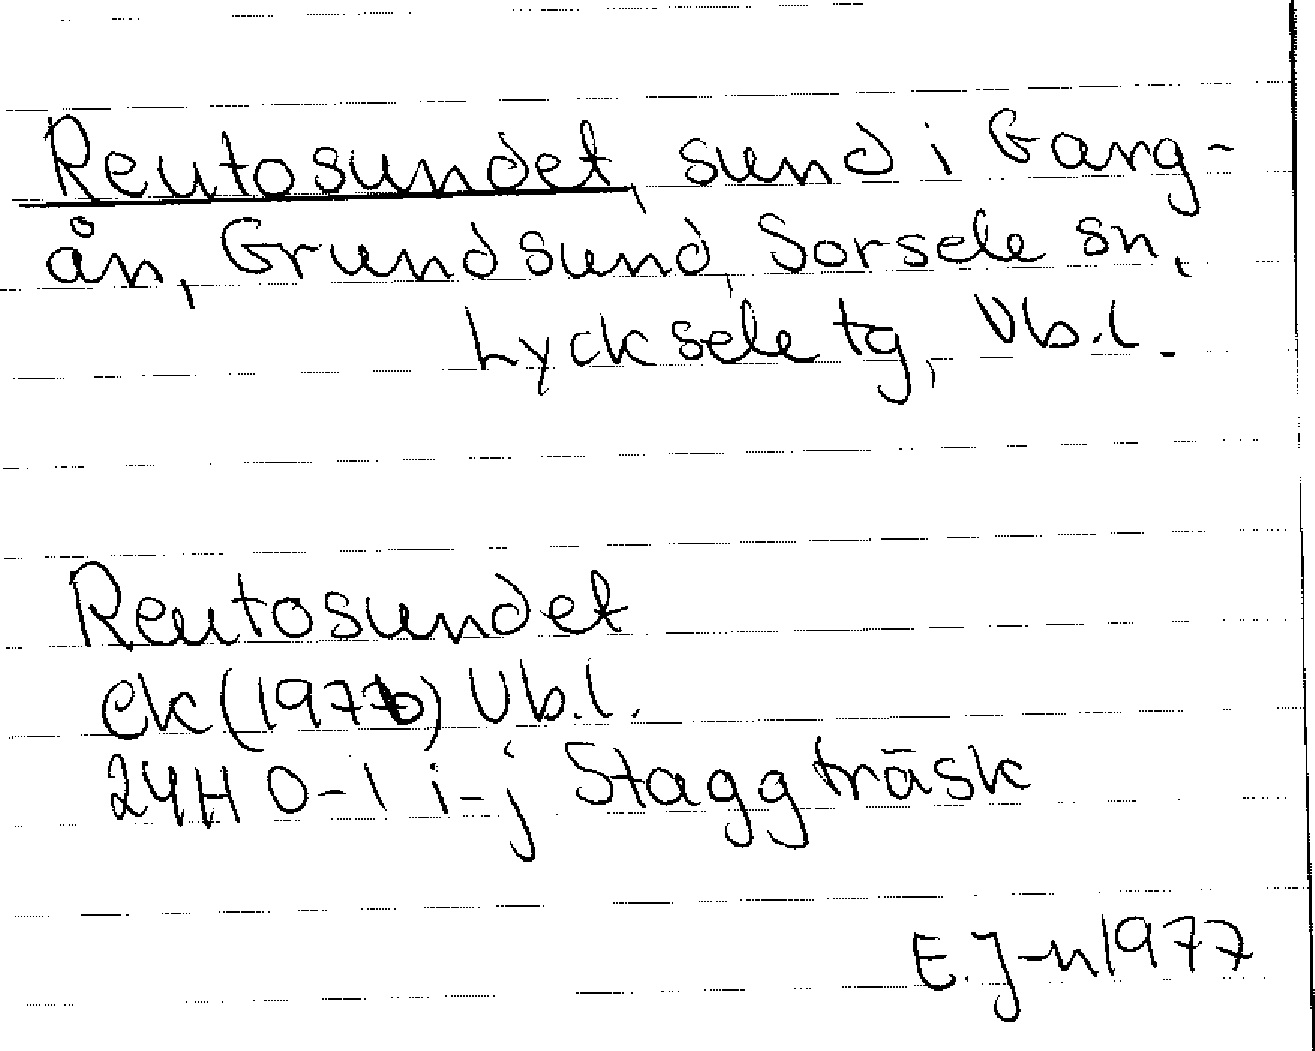 Reutosundet, sund i Gang-
ån, Grundsund, Sorsele sn,
Lycksele tg, Vb.l.
Reutosundet
ek (1976) Vb.l.
24H 0-1 i-j Staggträsk
E.J-n 1977